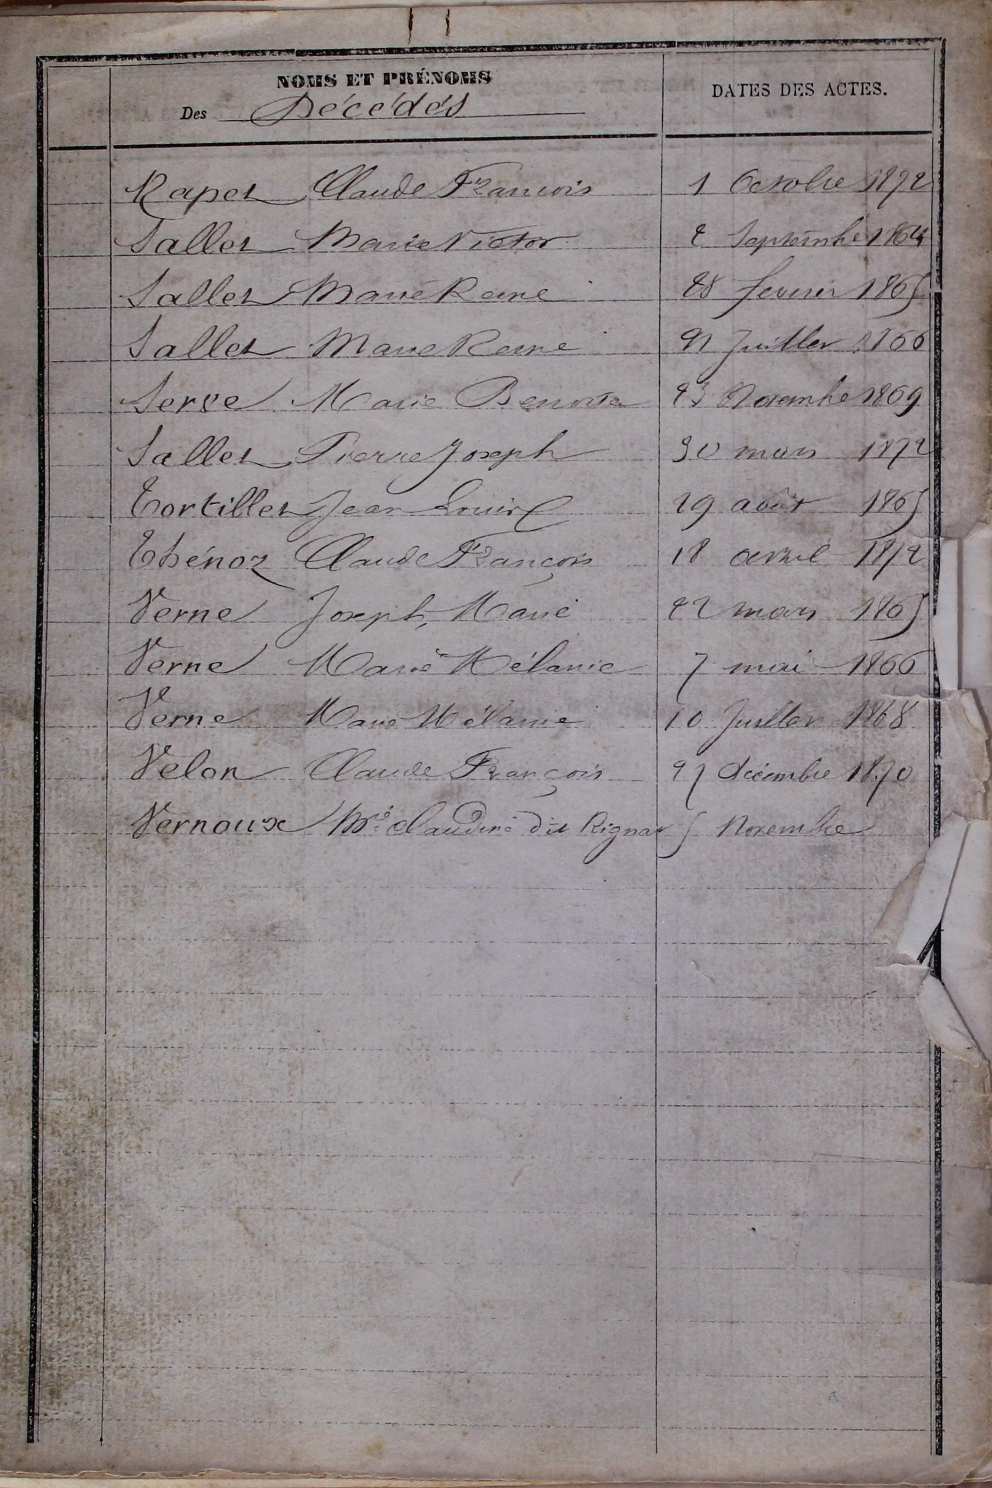 NOMS ET PRÉNOMS
Des Décédés
DATES DES ACTES.
Rapet Claude François 1 Octobre 1872
Sallet Marie Victor 2 Septembre 1864
Sallet Marie Reine 28 fevrier 1865
Sallet Marie Reine 21 Juillet 1866
Serve Marie Benoite 23 Novembre 1869
Sallet Pierre Joseph 30 mars 1872
Tortillet Jean Louis 29 août 1865
Thénoz Claude François 18 avril 1872
Verne Joseph, Marie 22 mars 1865
Verne Marie Mélanie 7 mai 1866
Verne Marie Mélanie 10 Juillet 1868
Velon Claude François 27 décembre 1870
Vernoux Mie Claudine dit Rignat 5 Novembre